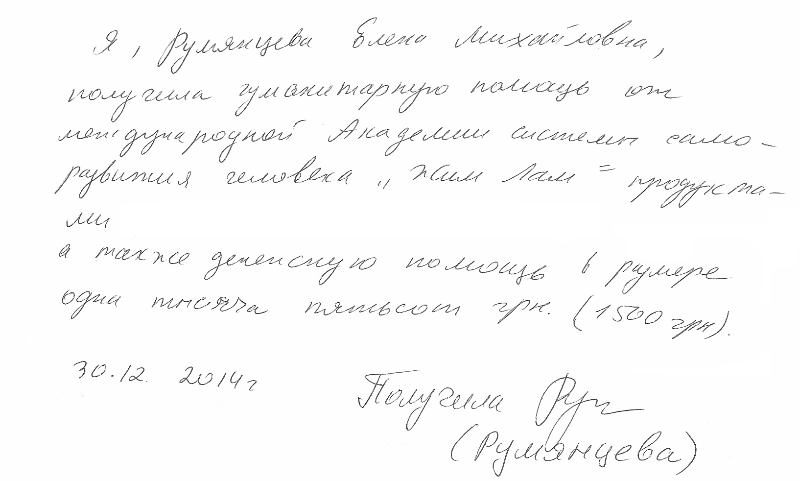 Я, Румянцева Елена Михайловна,
получила гуманитарную помощь от
международной Академии системы само-
развития человека „Жим Лам" продукта-
ми
а также денежную помощь в размере
одна тысяча пятьсот грн. (1500 грн).
30.12. 2014 г
Получила
(Румянцева)